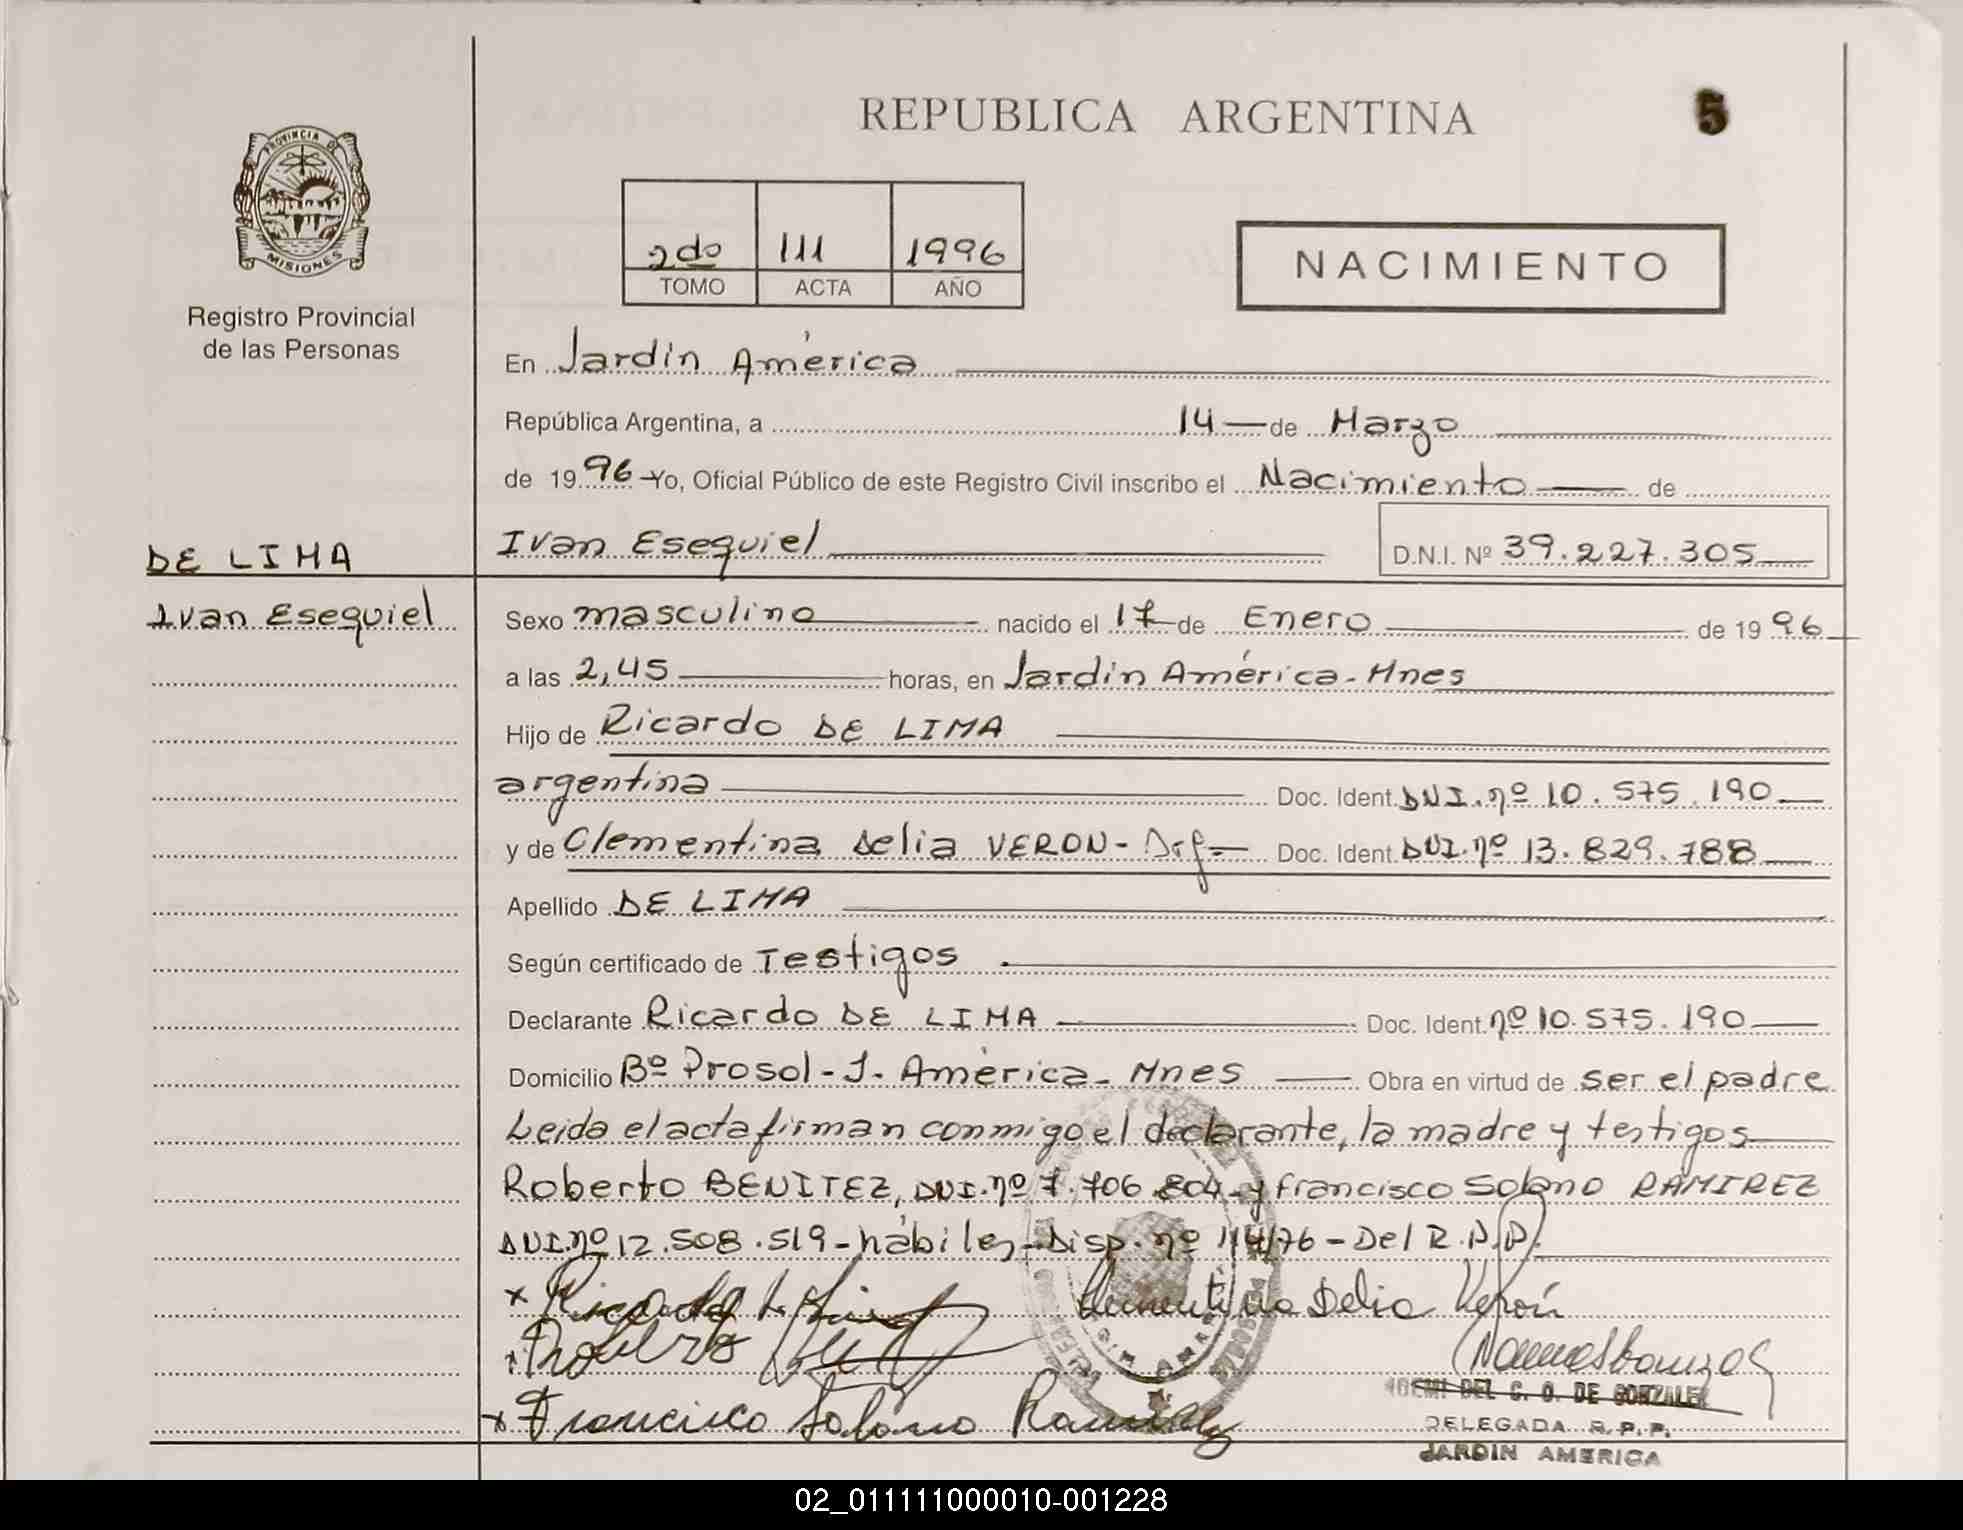 REPUBLICA ARGENTINA
5
PROVINCIA DE
MISIONES
Registro Provincial
de las Personas
2do 111 1996
TOMO ACTA AÑO
NACIMIENTO
En Jardín América
República Argentina, a 14 de Marzo
de 1996 Yo, Oficial Público de este Registro Civil inscribo el Nacimiento de
DE LIMA
Ivan Esequiel
Ivan Esequiel D.N.I. Nº 39.227.305
Sexo masculino nacido el 17 de Enero de 1996
a las 2,45 horas, en Jardin América - Mnes
Hijo de Ricardo DE LIMA
argentina Doc. Ident. DNI. nº 10.575.190
y de Clementina Delia VERON - Arg Doc. Ident. DNI. nº 13.829.788
Apellido DE LIMA
Según certificado de Testigos
Declarante Ricardo DE LIMA Doc. Ident. nº 10.575.190
Domicilio Bº Prosol - J. América - Mnes Obra en virtud de ser el padre
Leida el acta firman conmigo el declarante, la madre y testigos
Roberto BENITEZ, DNI. nº 7.706.804 y Francisco Solano RAMIREZ
DNI. nº 12.508.519 - hábiles - Disp. nº 114/76 - Del R.P.P.
Clementina Delia Verón
Francisco Solano Ramirez
DEL C. O. DE GONZALEZ
DELEGADA R.P.P.
JARDIN AMERICA
02_011111000010-001228